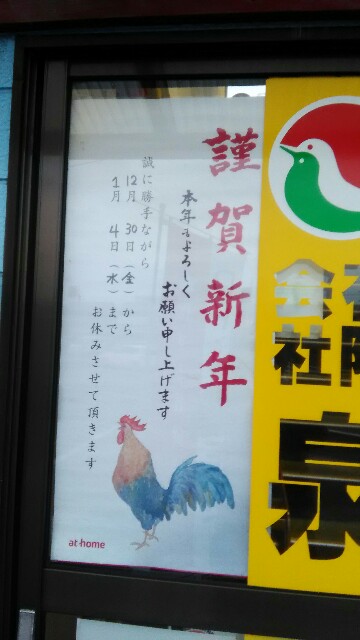 謹賀新年
本年もよろしく
お願い申し上げます
誠に勝手ながら
12月 30日(金)から
1月 4日(水)まで
お休みさせて頂きます
at home
会社
泉